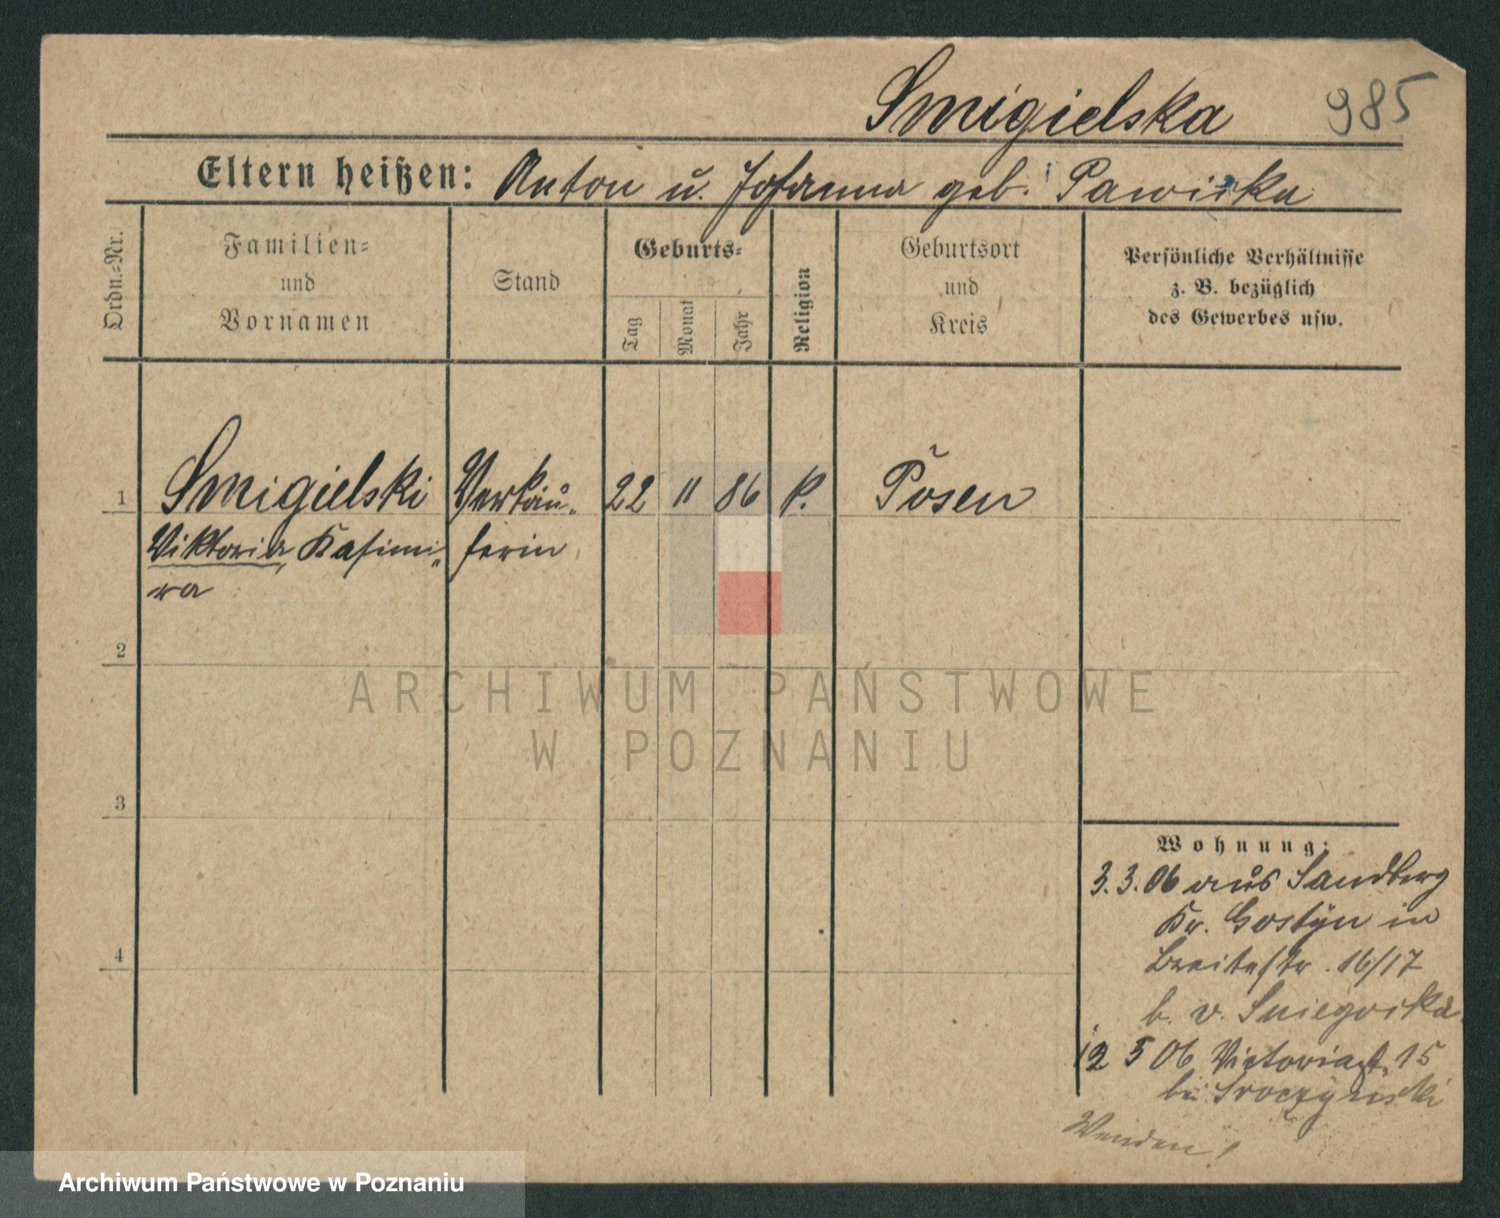 Smigielska 985
Eltern heißen: Anton u. Johanna geb. Pawicka
Ordn.-Nr.
Familien-
und
Vornamen
Stand
Geburts-
Tag
Monat
Jahr
Religion
Geburtsort
und
Kreis
Persönliche Verhältnisse
z. B. bezüglich
des Gewerbes usw.
1 Smigielski Verkäu- 22 11 86 k. Posen
Viktoria, Kasimi- ferin
ra
2
ARCHIWUM PAŃSTWOWE
W POZNANIU
3
Wohnung:
3.3.06 aus Sandberg
Kr. Gostyn in
4
Breitestr. 16/17
b. v.
12 5 06 Victoriast. 15
bei Sroczynski
Wenden!
Archiwum Państwowe w Poznaniu